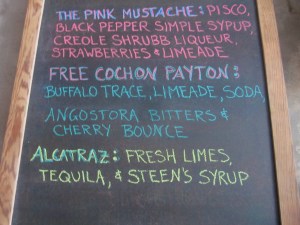 THE PINK MUSTACHE: PISCO,
BLACK PEPPER SIMPLE SYRUP,
CREOLE SHRUBB LIQUEUR,
STRAWBERRIES & LIMEADE
FREE COCHON PAYTON:
BUFFALO TRACE, LIMEADE, SODA,
ANGOSTORA BITTERS &
CHERRY BOUNCE
ALCATRAZ: FRESH LIMES,
TEQUILA, & STEEN'S SYRUP